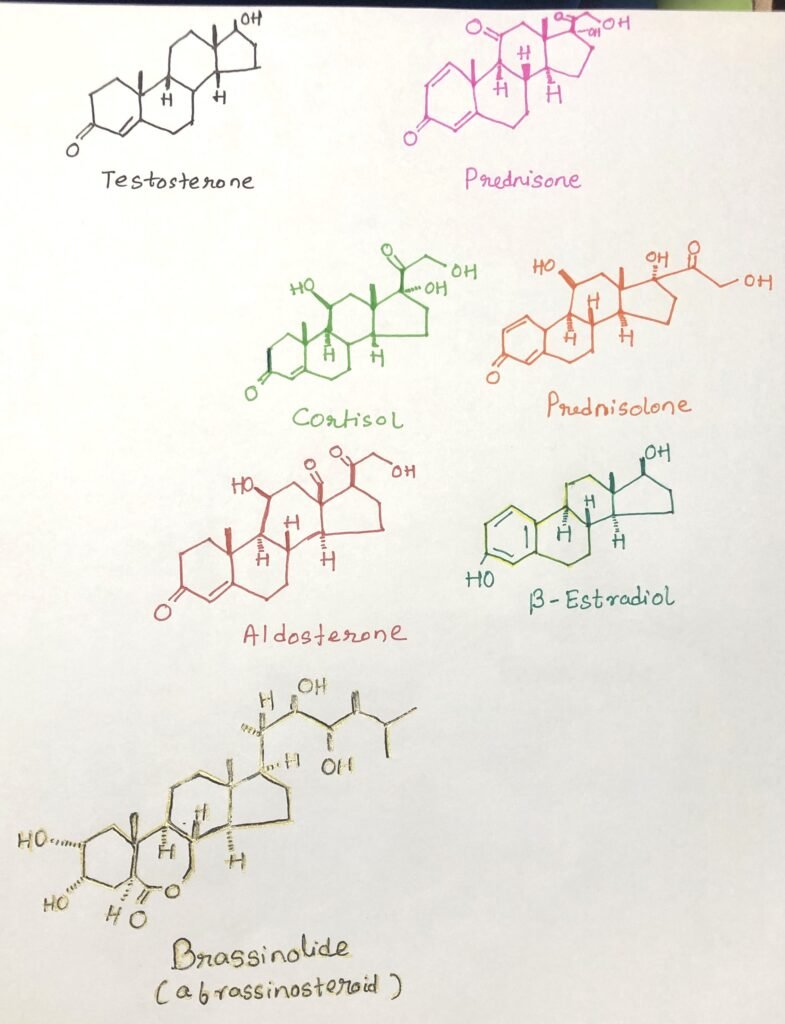 OH
H
H
O
Testosterone
O
O
OH
OH
H
H
H
O
Prednisone
O
OH
OH
HO
H
H
O
Cortisol
O
OH
HO
OH
H
H
H
O
Prednisolone
O
O
OH
HO
H
H
H
O
Aldosterone
OH
H
H
H
HO
β-Estradiol
H
OH
OH
H
H
H
H
HO
HO
H
O
O
Brassinolide
(a brassinosteroid)